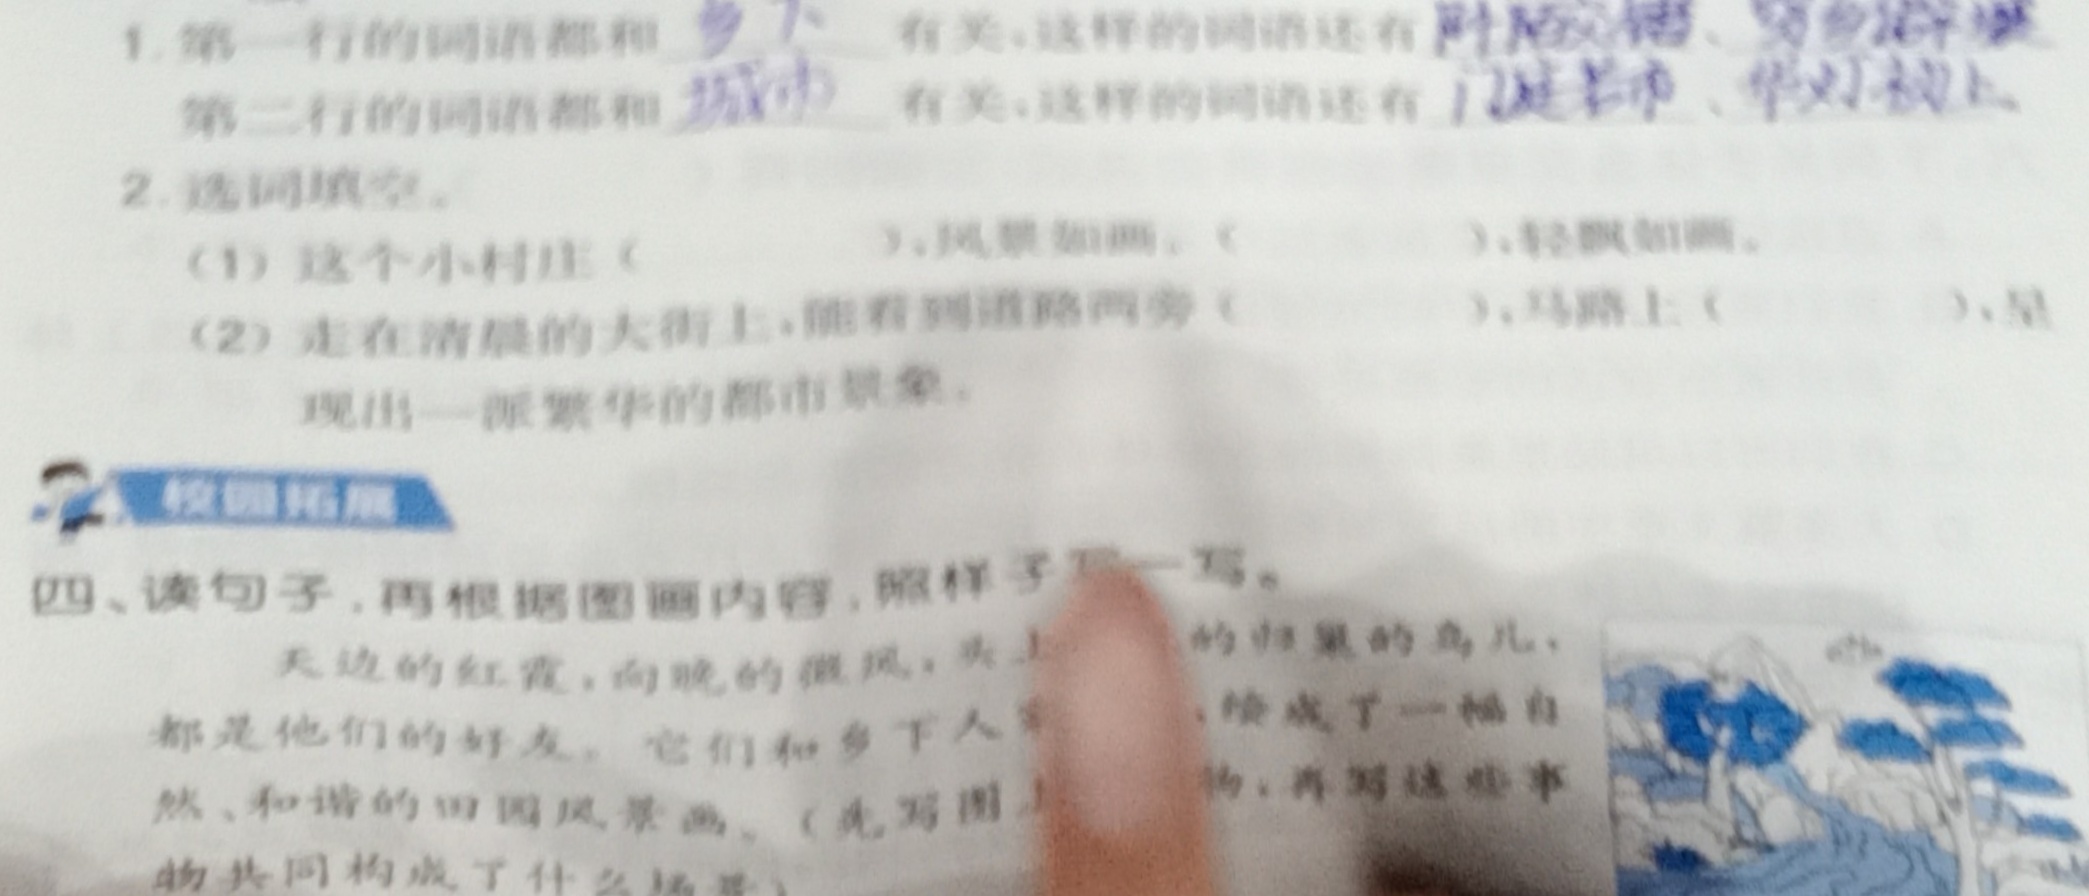 1. 第一行的词语都和 乡下 有关,这样的词语还有 、穷乡僻壤
第二行的词语都和 城市 有关,这样的词语还有 门庭若市、华灯初上
2. 选词填空。
(1) 这个小村庄( ),风景如画。( ),轻飘如画。
(2) 走在清晨的大街上,能看到道路两旁( ),马路上( ),呈
现出一派繁华的都市景象。
校园拓展
四、读句子,再根据图画内容,照样子写一写。
天边的红霞,向晚的微风,头上 的归巢的鸟儿,
都是他们的好友。它们和乡下人 ,绘成了一幅自
然、和谐的田园风景画。(先写图 ,再写这些事
物共同构成了什么场景)